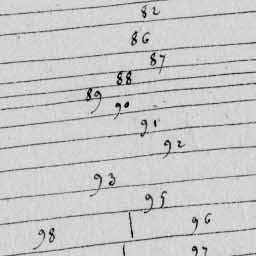 82
86
87
88
89
90
91
92
93
95
96
98
97